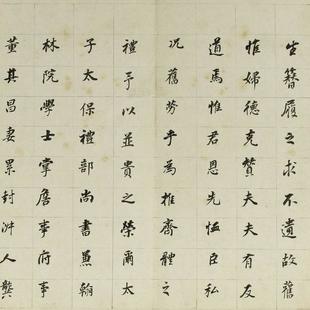 簪履之求不遺故舊
惟婦德克贊夫夫有友
道焉惟君恩先恤臣私
况舊勞乎為推齊體之
禮予以並貴之榮爾太
子太保禮部尚書兼翰
林院學士掌詹事府事
董其昌妻累封淑人龔